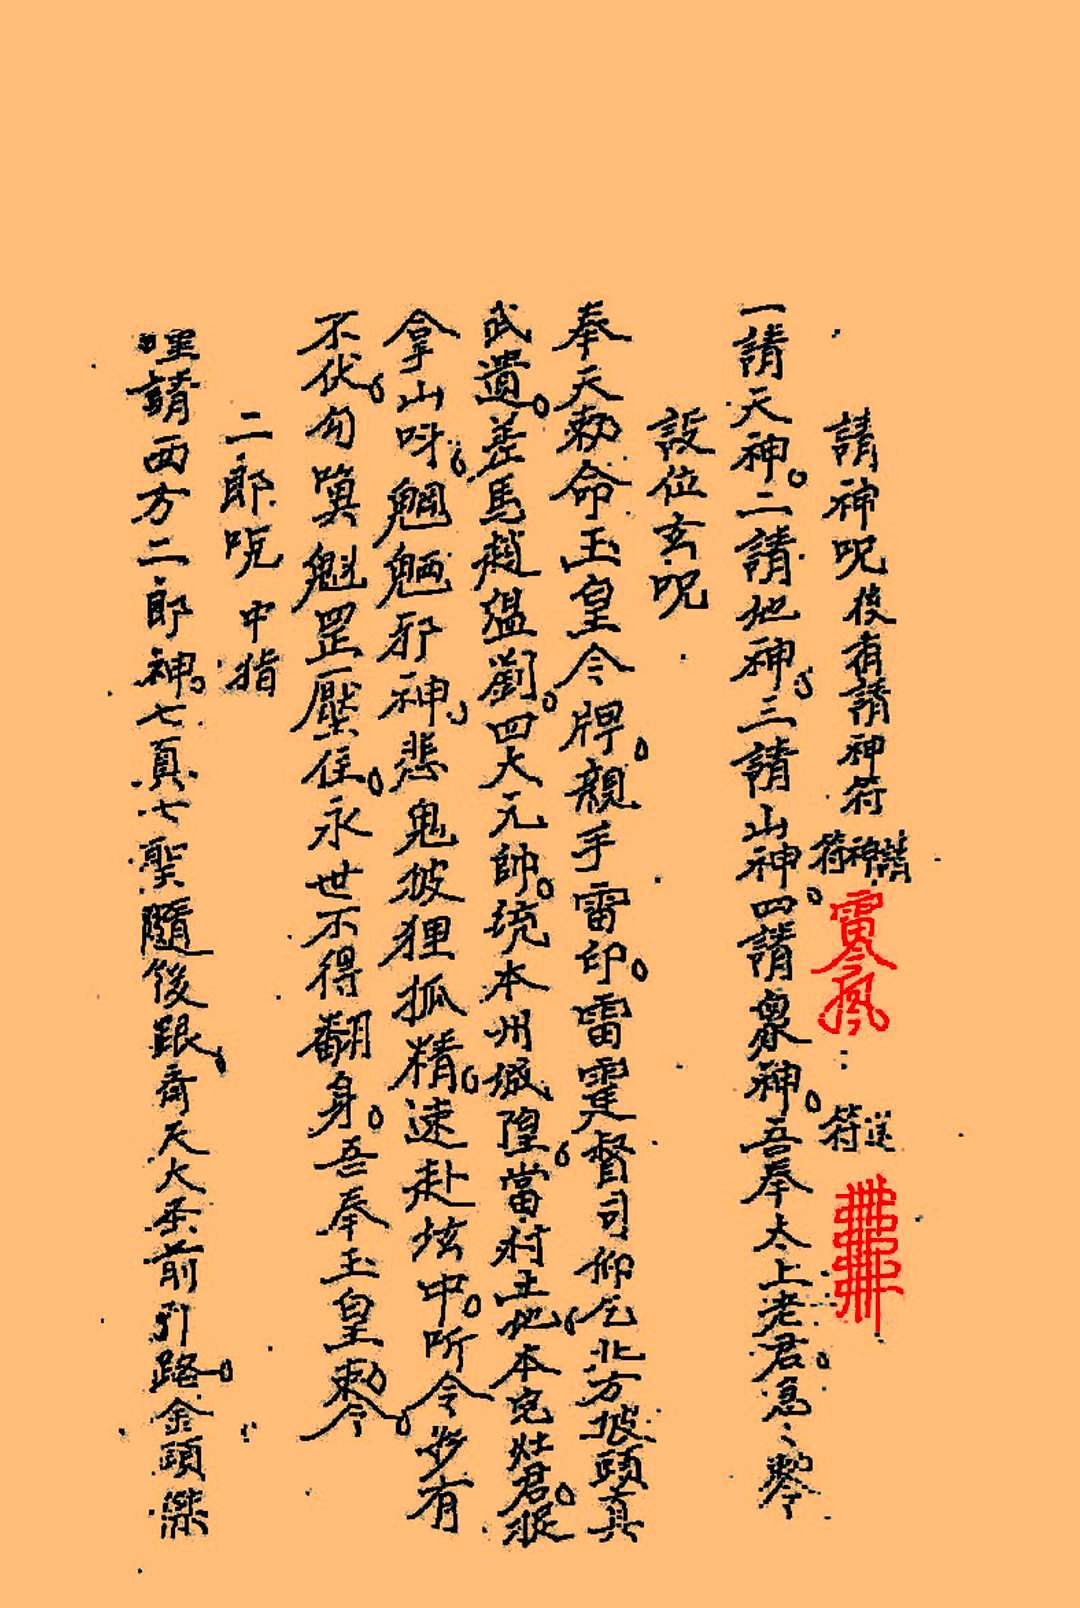 請神咒後有請神符
請神符
送符
一請天神。二請地神。三請山神。四請眾神。吾奉太上老君。急〻
設位玄呪
奉天勅命玉皇令牌。親手雷印。雷霆督司仰乞。北方披頭真
武遺。差馬趙温劉。四大元帥。琉本州城隍。當村土地本宅灶君。捉
拿山呀。魍魎邪神。悲鬼披狸狐精。速赴炫中。听令。多有
不伏。魁罡壓住。永世不得翻身。吾奉玉皇勅令
二郎咒 中指
請西方二郎神。七真七聖隨後跟。齊天大圣前引路。金頭